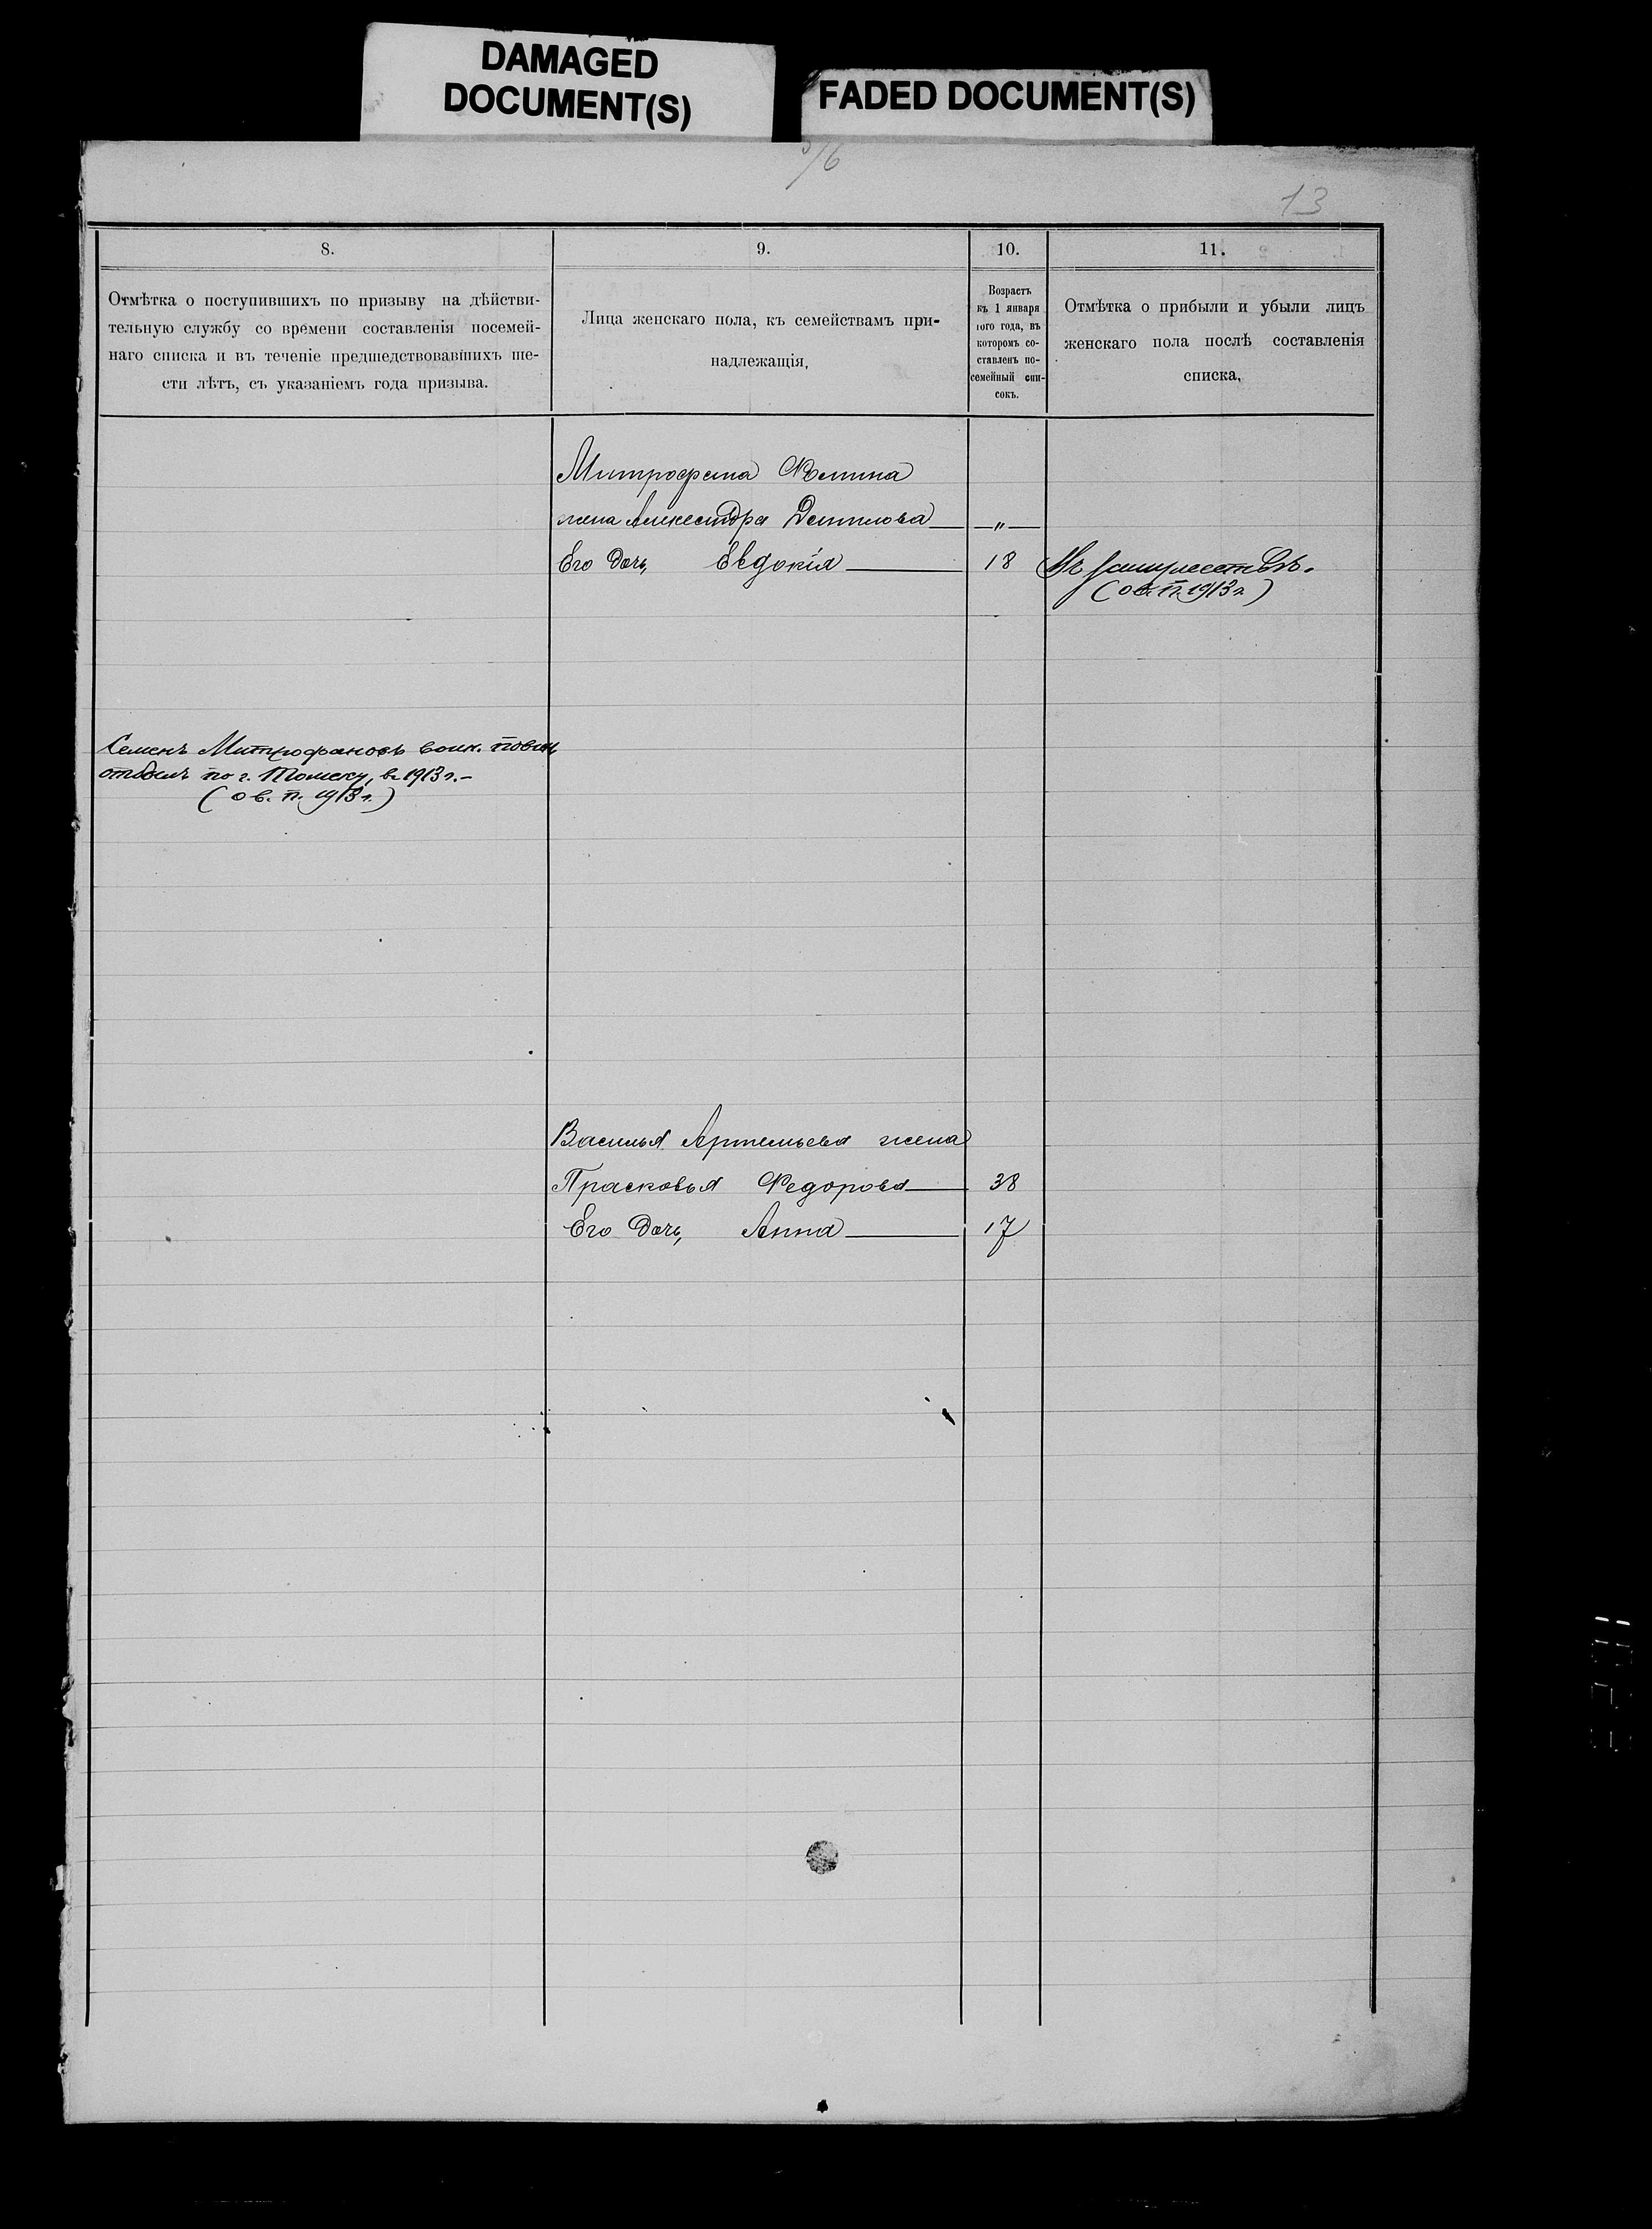 DAMAGED
DOCUMENT(S)
FADED DOCUMENT(S)
13
8.
Отмѣтка о поступившихъ по призыву на дѣйстви-
тельную службу со времени составленія посемей-
наго списка и въ теченіе предшедствовавшихъ ше-
сти лѣтъ, съ указаніемъ года призыва.
9.
Лица женскаго пола, къ семействамъ при-
надлежащія,
10.
Возрастъ
къ 1 января
того года, въ
которомъ со-
ставленъ по-
семейный спи-
сокъ.
11.
Отмѣтка о прибыли и убыли лицъ
женскаго пола послѣ составленія
списка,
Митрофана Фомина
жена Александра Данилова „
Его дочь, Евдокія 18 Въ замужествѣ.
(ов. п. 1913 г.)
Семенъ Митрофановъ воин. повин.
отбылъ по г. Томску, въ 1913 г.-
(ов. п. 1913 г.)
Василья Артемьева жена
Прасковья Федорова 38
Его дочь, Анна 17